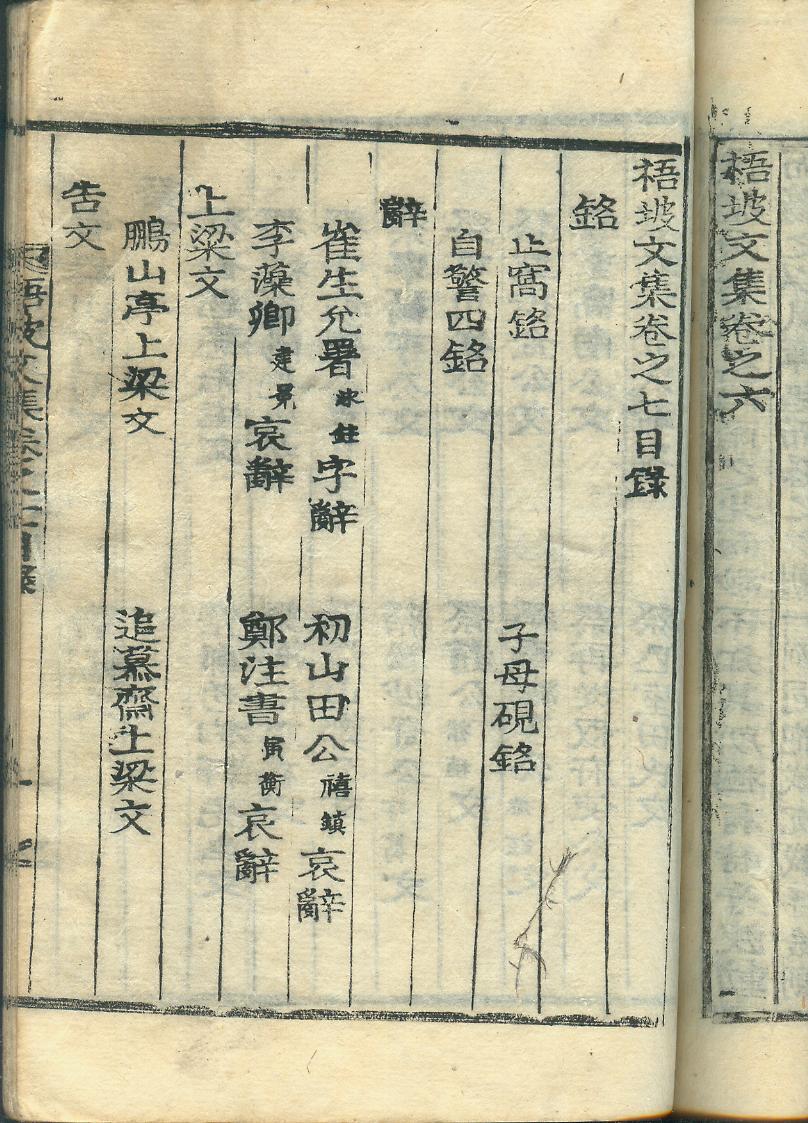 梧坡文集卷之六
梧坡文集卷之七目錄
銘
止窩銘 子母硯銘
自警四銘
辭
崔生允署 字辭 初山田公禧鎮哀辭
李藻卿建晃哀辭 鄭注書寅衡哀辭
上梁文
鵬山亭上梁文 追慕齋上梁文
告文
梧坡文集卷之七目錄